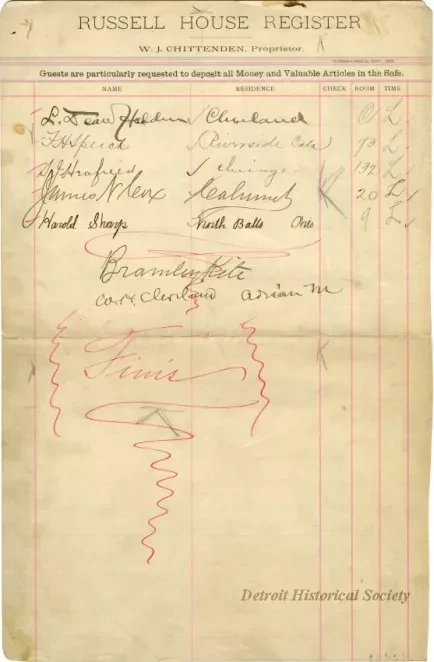 RUSSELL HOUSE REGISTER
W. J. CHITTENDEN, Proprietor.
Guests are particularly requested to deposit all Money and Valuable Articles in the Safe.
NAME RESIDENCE CHECK ROOM TIME
L. Dean Holden Cleveland L
Riverside Cala 93 L
Chicago 192 L
James N Cox Calumet 20 L
Harold Sharp North Balto Ohio 9 L
Bramley Kite
Co. H. Cleveland Adrian M
Finis
Detroit Historical Society